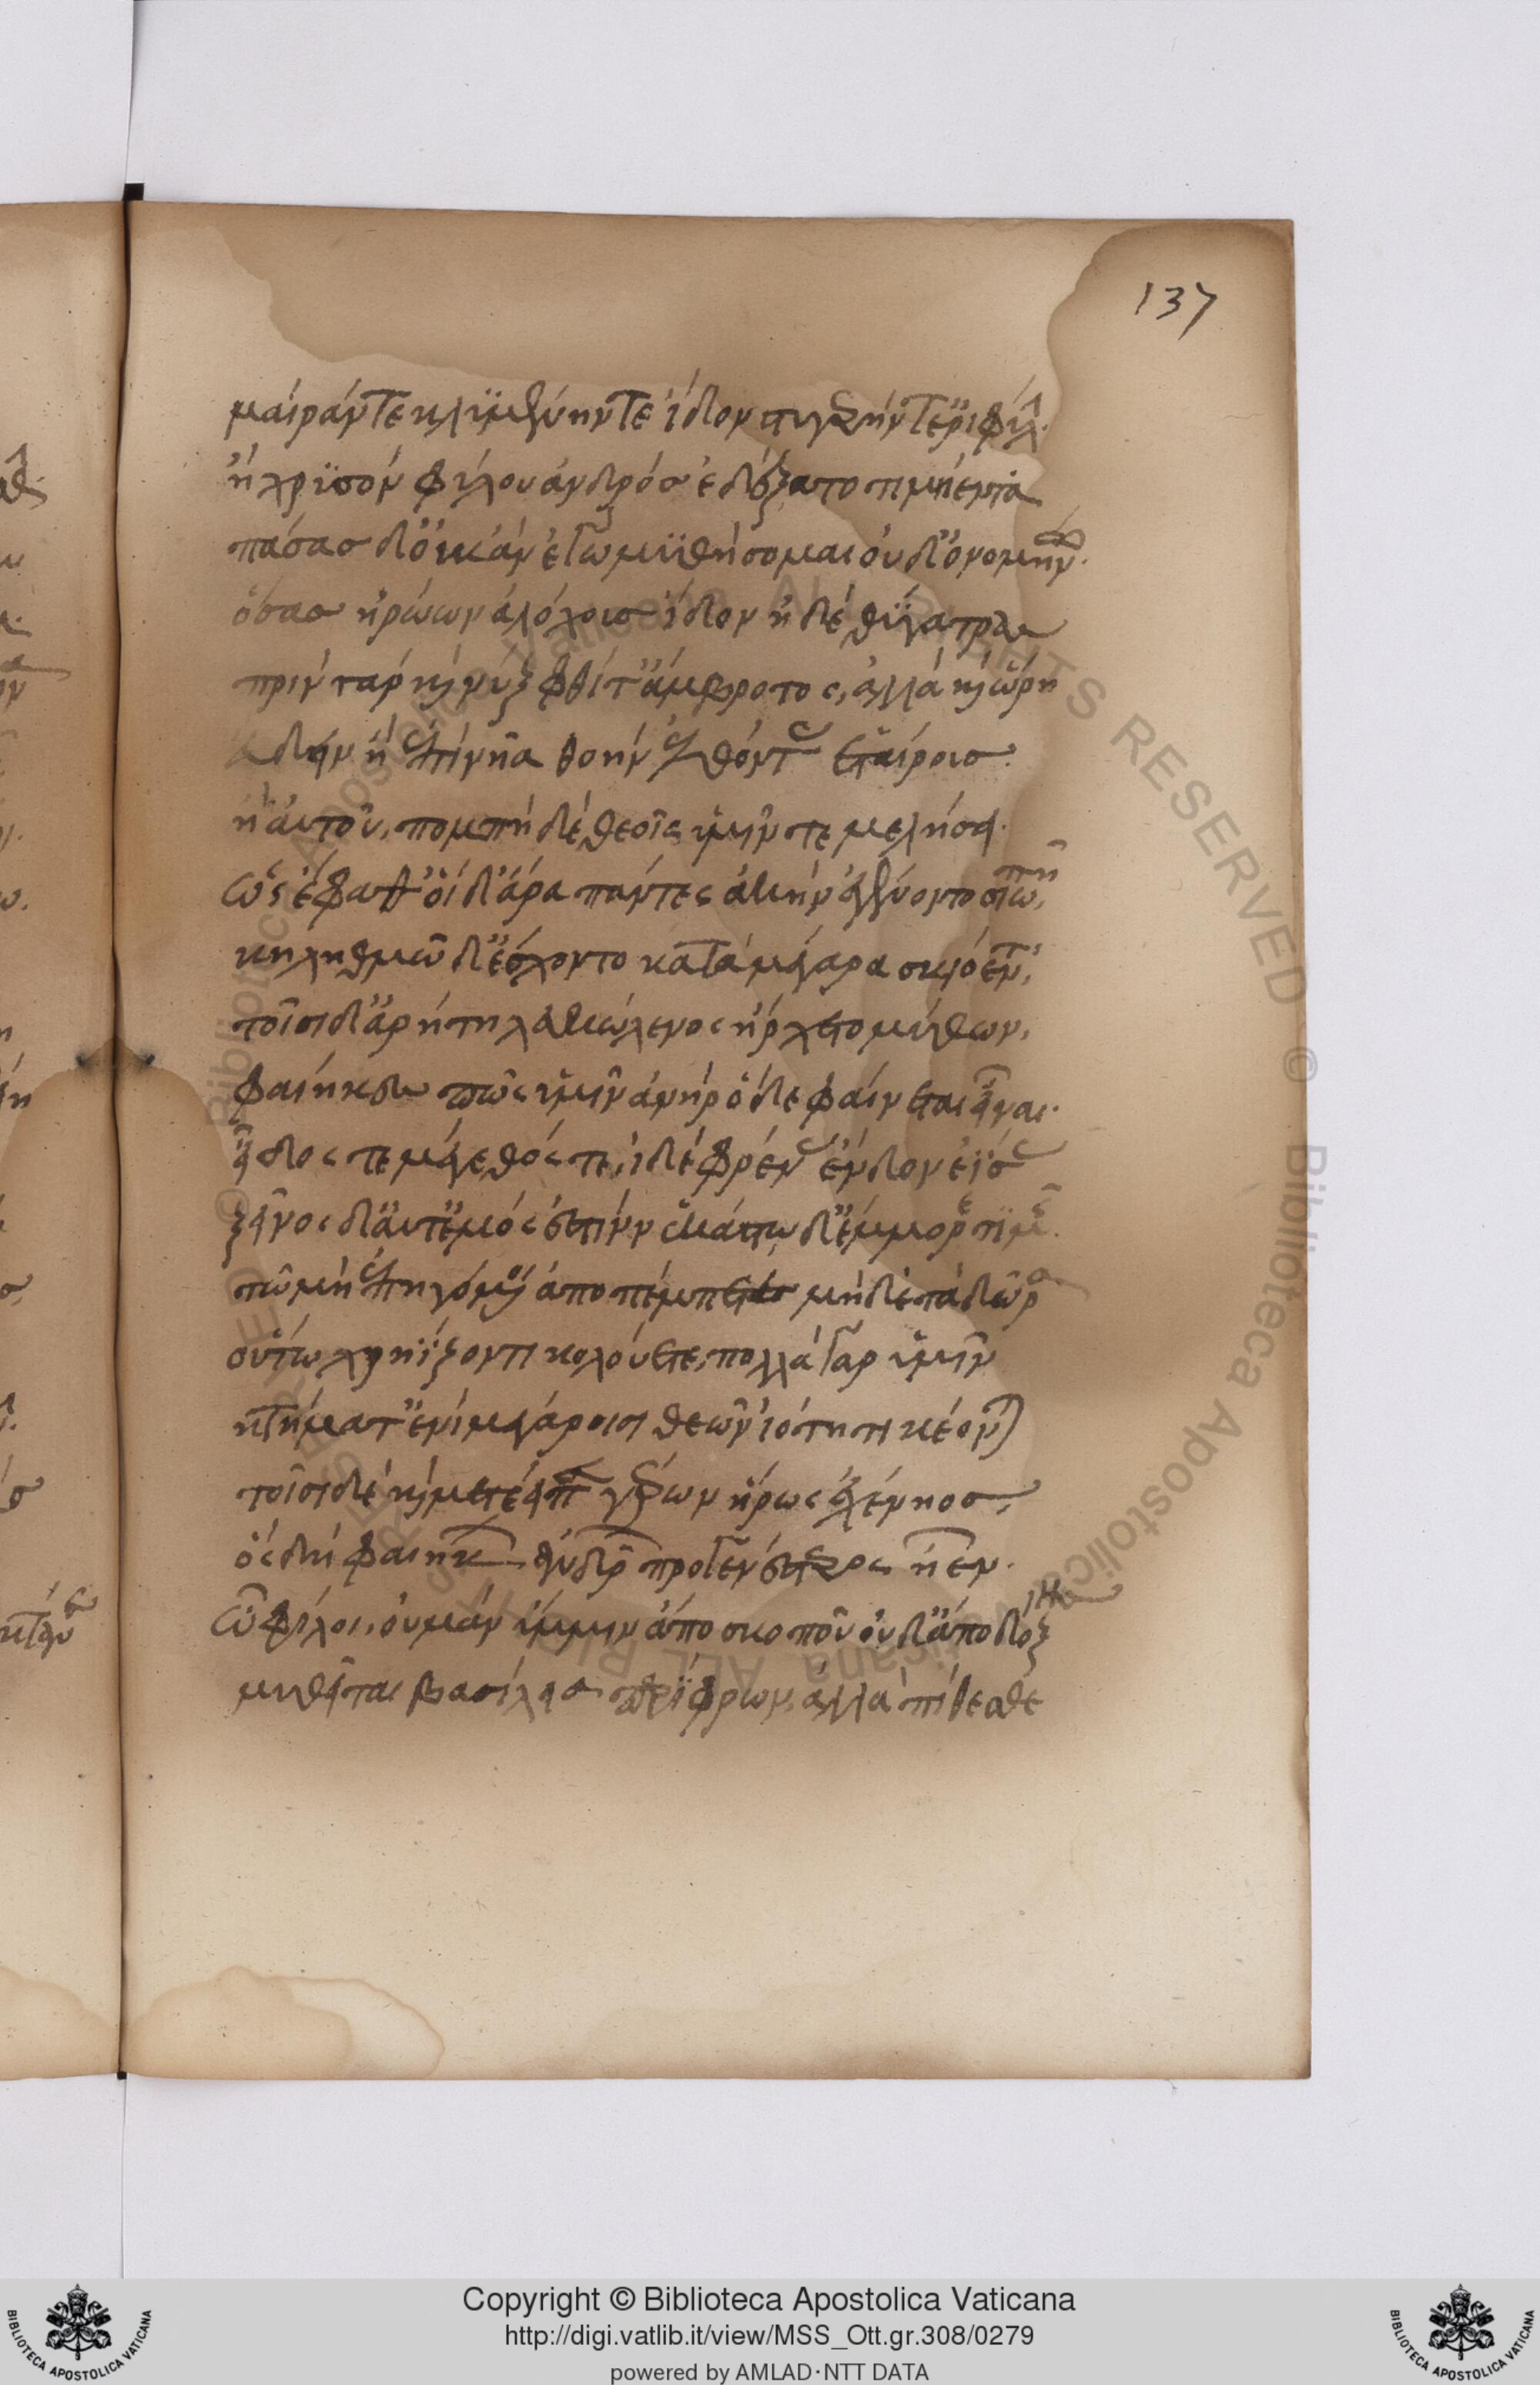 137
μαίραν τε κλϋμένην τε ἴδον στυγερήν τ' ἐριφύλ
ἢ χρϋσὸν φίλου ἀνδρὸσ ἐδέξατο τιμήεντα
πάσασ δ' οὐκ ἂν ἐγὼ μϋθήσομαι οὐδ' ὀνομήν
ὅσασ ἡρώων ἀλόχουσ ἴδον ἠδὲ θϋγατρας
πρίν γαρ κὲν νὺξ φθῖτ' ἄμβροτος, ἀλλὰ καὶ ὥρη
εὕδειν ἢ ἐπὶ νῆα θοὴν ἐλθόντ ἐς ἑταίρουσ
ἢ αὐτοῦ, πομπὴ δὲ θεοῖς ὑμῖν τε μελήσει
ὣς ἔφαθ' οἱ δ' ἄρα πάντες ἀκὴν ἐγένοντο σιωπῆ,
κηληθμῶ δ' ἔσχοντο κατὰ μέγαρα σκιόεντ,
τοῖσι δ' ἄρήτη λευκώλενος ἤρχετο μύθων,
φαίηκες πῶς ὑμῖν ἀνὴρ ὅδε φαίνεται εἶναι
εἶδος τε μέγεθός τε, ἰδὲ φρένας ἔνδον ἐΐσας
ξεῖνος δ' αὖτ' ἐμός ἐστιν, ἕκαστος δ' ἔμμορε τϊμῆς
τῶ μὴ ἐπειγόμενοι ἀποπέμπετε μηδὲ τὰ δῶρα
οὕτω χρηΐζοντι κολούετε, πολλὰ γὰρ ὑμῖν
κτήματ' ἐνὶ μεγάροισι θεῶν ἰότητι κέονται
τοῖσι δὲ καὶ μετέειπε γέρων ἥρως ἐχένηοσ,
ὃς δὴ φαιήκων ἀνδρῶν προγενέστερος ἦεν
ὦ φίλοι, οὐ μὰν ἥμμιν ἀπο σκοποῦ οὐδ' ἀπο δόξης
μυθεῖται βασίλεια περίφρων, ἀλλὰ πίθεσθε
Copyright © Biblioteca Apostolica Vaticana
http://digi.vatlib.it/view/MSS_Ott.gr.308/0279
powered by AMLAD·NTT DATA